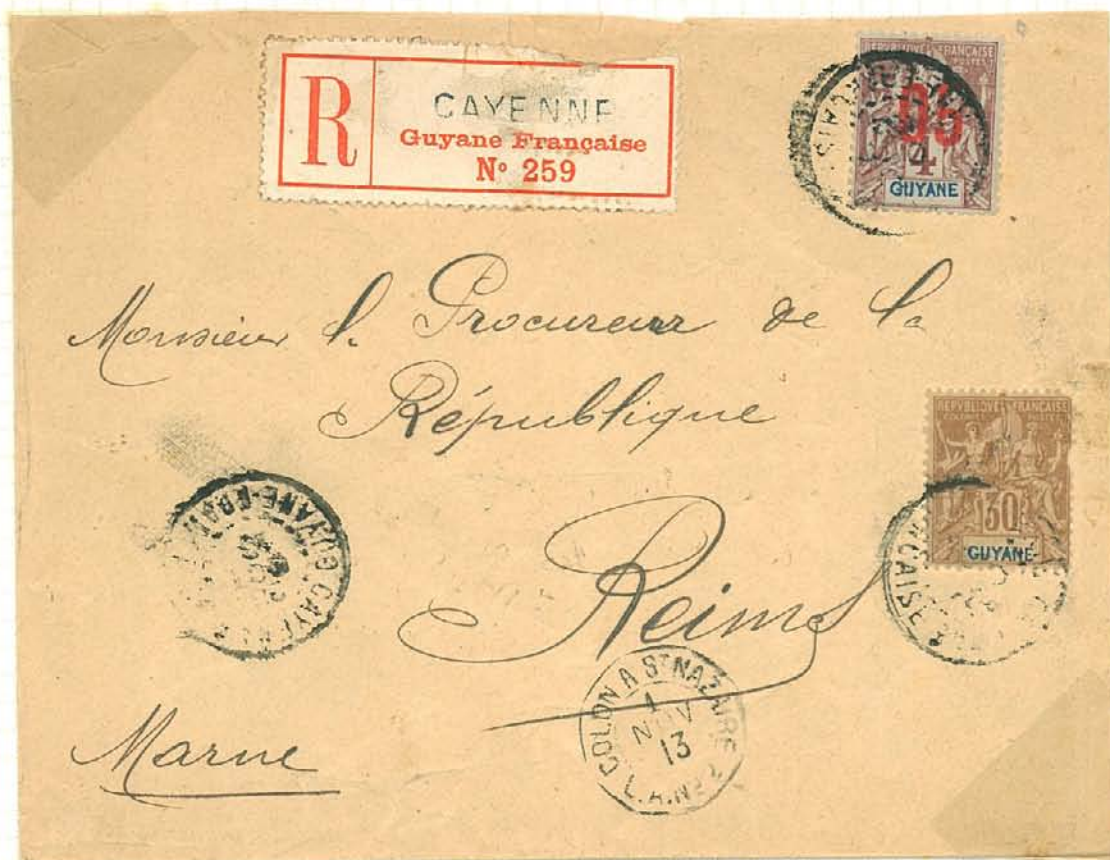 R
CAYENNE
Guyane Française
N° 259
REPUBLIQUE FRANÇAISE
POSTES
05
4
GUYANE
Monsieur l. Procureur de la
République
REPUBLIQUE FRANÇAISE
30
GUYANE
Reims
CAYENNE
GUYANE-FRANÇAISE
COLON A ST NAZAIRE
1
NOV
13
L.A.N° 2
Marne